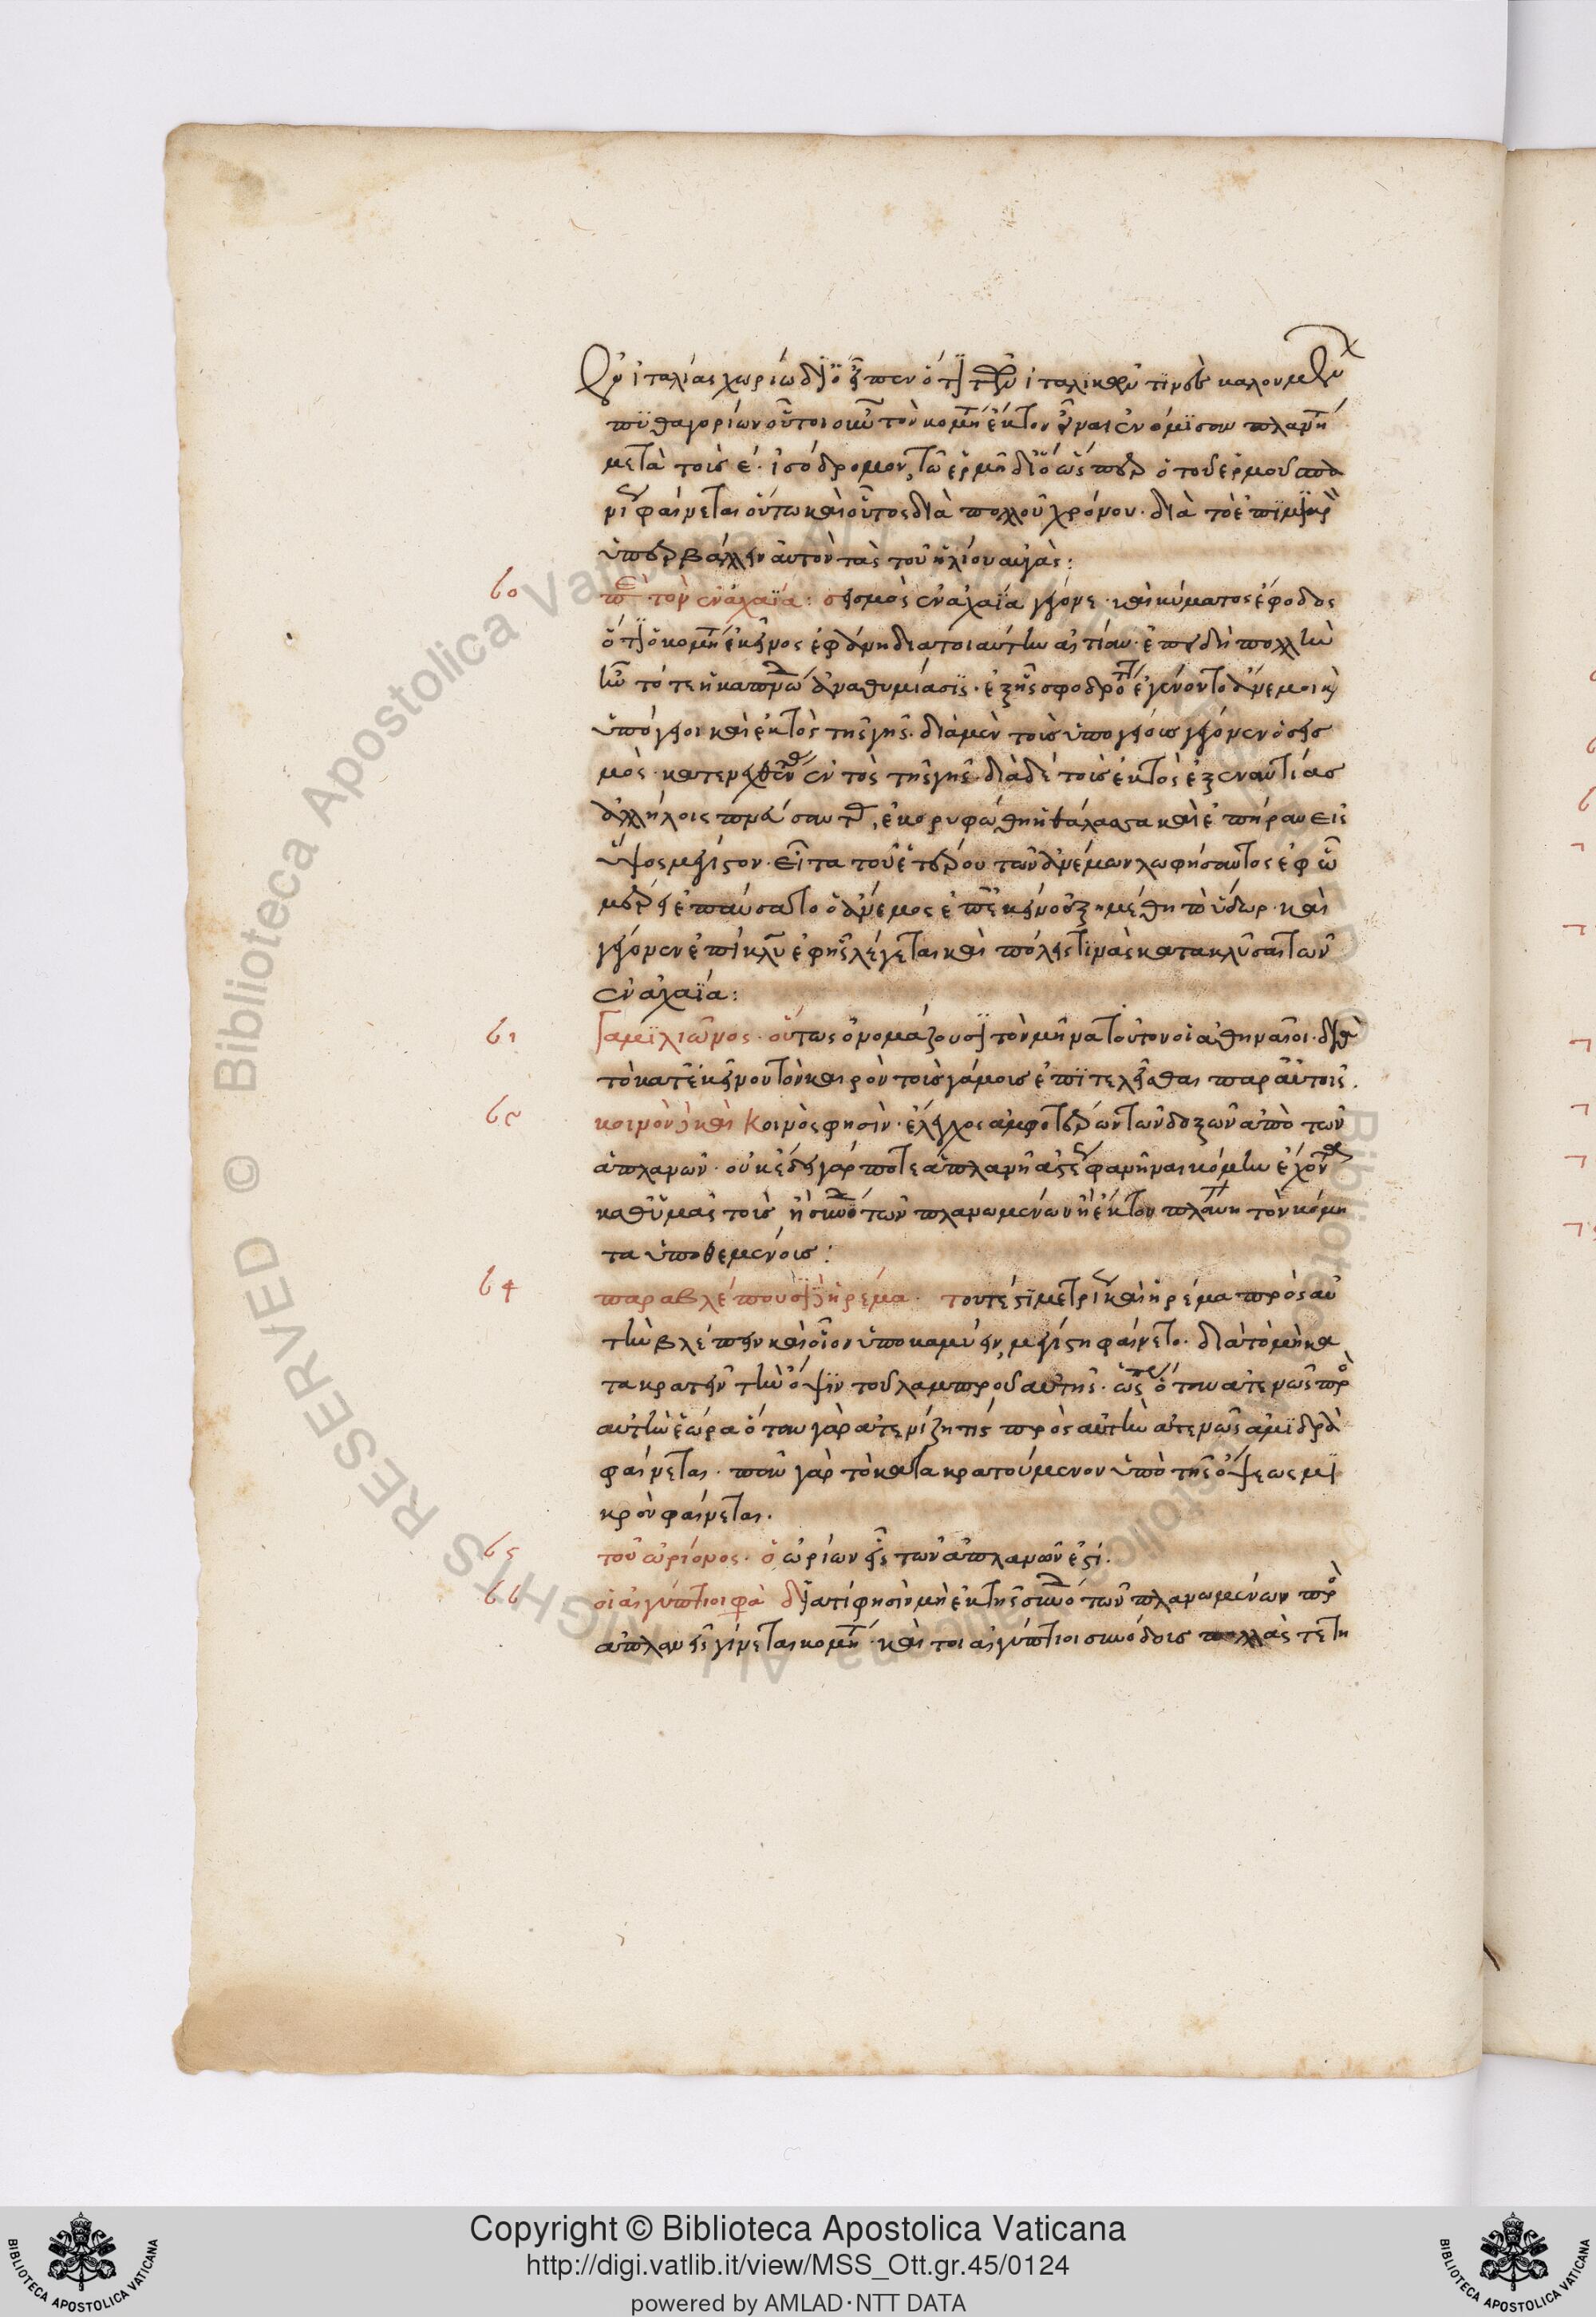 ἐν ἰταλίας χωρίω διὸ εἶπεν ὅτι τῶν ἰταλικῶν τινὲς καλουμένων
πυθαγορίων οὗτοι οὖν τὸν κομήτην ἕκτον εἶναι ἐνόμισαν πλανήτην
μετὰ τοὺς ε΄. ἰσόδρομον τῶ ἑρμῆ διὸ ὥσπερ ὁ τοῦ ἑρμοῦ
φαίνεται οὕτω καὶ οὗτος διὰ πολλοῦ χρόνου. διὰ τὸ ἐπὶ μικρὸν
ὑπερβάλλειν αὐτὸν τὰς τοῦ ἡλίου αὐγάς:
60 περὶ τὸν ἐν ἀχαΐα: σεισμὸς ἐν ἀχαΐα γέγονε. καὶ κύματος ἔφοδος
ὅτι ὁ κομήτης ἐκεῖνος ἐφάνη διατοιαύτην αἰτίαν. ἐπειδὴ πολλὴν
ἦν τότε ἡ καπνώδης ἀναθυμίασις. ἐξ ἧς σφοδρότατοι ἐγένοντο ἄνεμοι καὶ
ὑπόγειοι καὶ ἐκτὸς τῆς γῆς. διὰ μὲν τοὺς ὑπογείους γέγονεν ὁ σεισ
μὸς. κατενεχθέντας ἐντὸς τῆς γῆς. διὰ δὲ τοὺς ἐκτὸς ἐξεναντίας
ἀλλήλοις πνεύσαντας, ἐκορυφώθη ἡ θάλασσα καὶ ἐπήραν εἰς
ὕψος μέγιστον. εἶτα τοῦ ἑτέρου τῶν ἀνέμων λωφήσαντος ἐφ ὧ
μέρει ἐπαύσατο ὁ ἄνεμος ἐπ' ἐκεῖνο ἐξηνέχθη τὸ ὕδωρ. καὶ
γέγονεν ἐπίκλυσις ἐφ ἧς λέγεται καὶ πόλεις τινὰς κατακλῦσαι τῶν
ἐν ἀχαΐα:
61 γαμιλιῶνος. οὕτως ὀνομάζουσι τὸν μῆνα τοῦτον οἱ ἀθηναῖοι. διὰ
τὸ κατ' ἐκεῖνον τὸν καιρὸν τοὺς γάμους ἐπιτελεῖσθαι παρ αὐτοῖς.
62 κοινὸν δὲ καὶ κοινὸς φησὶν. ἔλεγχος ἀμφοτέρων τῶν δοξῶν ἀπὸ τῶν
ἀπλανῶν. οὐκ ἔδει γάρ ποτε ἀπλανῆ ἀστέρα φανῆναι κόμην ἔχοντα
καθ' ὑμᾶς τοὺς ἢ σύνοδον τῶν πλανωμένων ἢ ἕκτον πλάνητα τὸν κομή
τα ὑποθεμένους:
64 παραβλέπουσι δὲ ἠρέμα. τουτέστι μετρίως καὶ ἠρέμα πρὸς αὐ
τὴν βλέπειν καὶ οἷον ὑποκαμύειν, μεγίστη φαίνεται. διὰ τὸ μὴ κα
τακρατεῖν τὴν ὄψιν τοῦ λαμπροῦ αὐτῆς. ὥσπερ ὅταν ἀτενῶς πρὸς
αὐτὴν ἑώρα ὅταν γὰρ ἀτενίζη τίς πρὸς αὐτὴν ἀτενῶς ἀμιδρὰ
φαίνεται. πᾶν γὰρ τὸ κατακρατούμενον ὑπὸ τῆς ὄψεως μι
κρὸν φαίνεται.
65 τοῦ ὠρίονος. ὁ ὠρίων εἷς τῶν ἀπλανῶν ἐστί.
66 οἱ αἰγύπτιοι φασὶ διατί φησὶν μὴ ἐκ τῆς συνόδου τῶν πλανωμένων πρὸς
ἀπλανεῖς γίνεται κομήτης. καὶ τοι αἰγύπτιοι συνόδους πολλὰς τετη
Copyright © Biblioteca Apostolica Vaticana
http://digi.vatlib.it/view/MSS_Ott.gr.45/0124
powered by AMLAD·NTT DATA